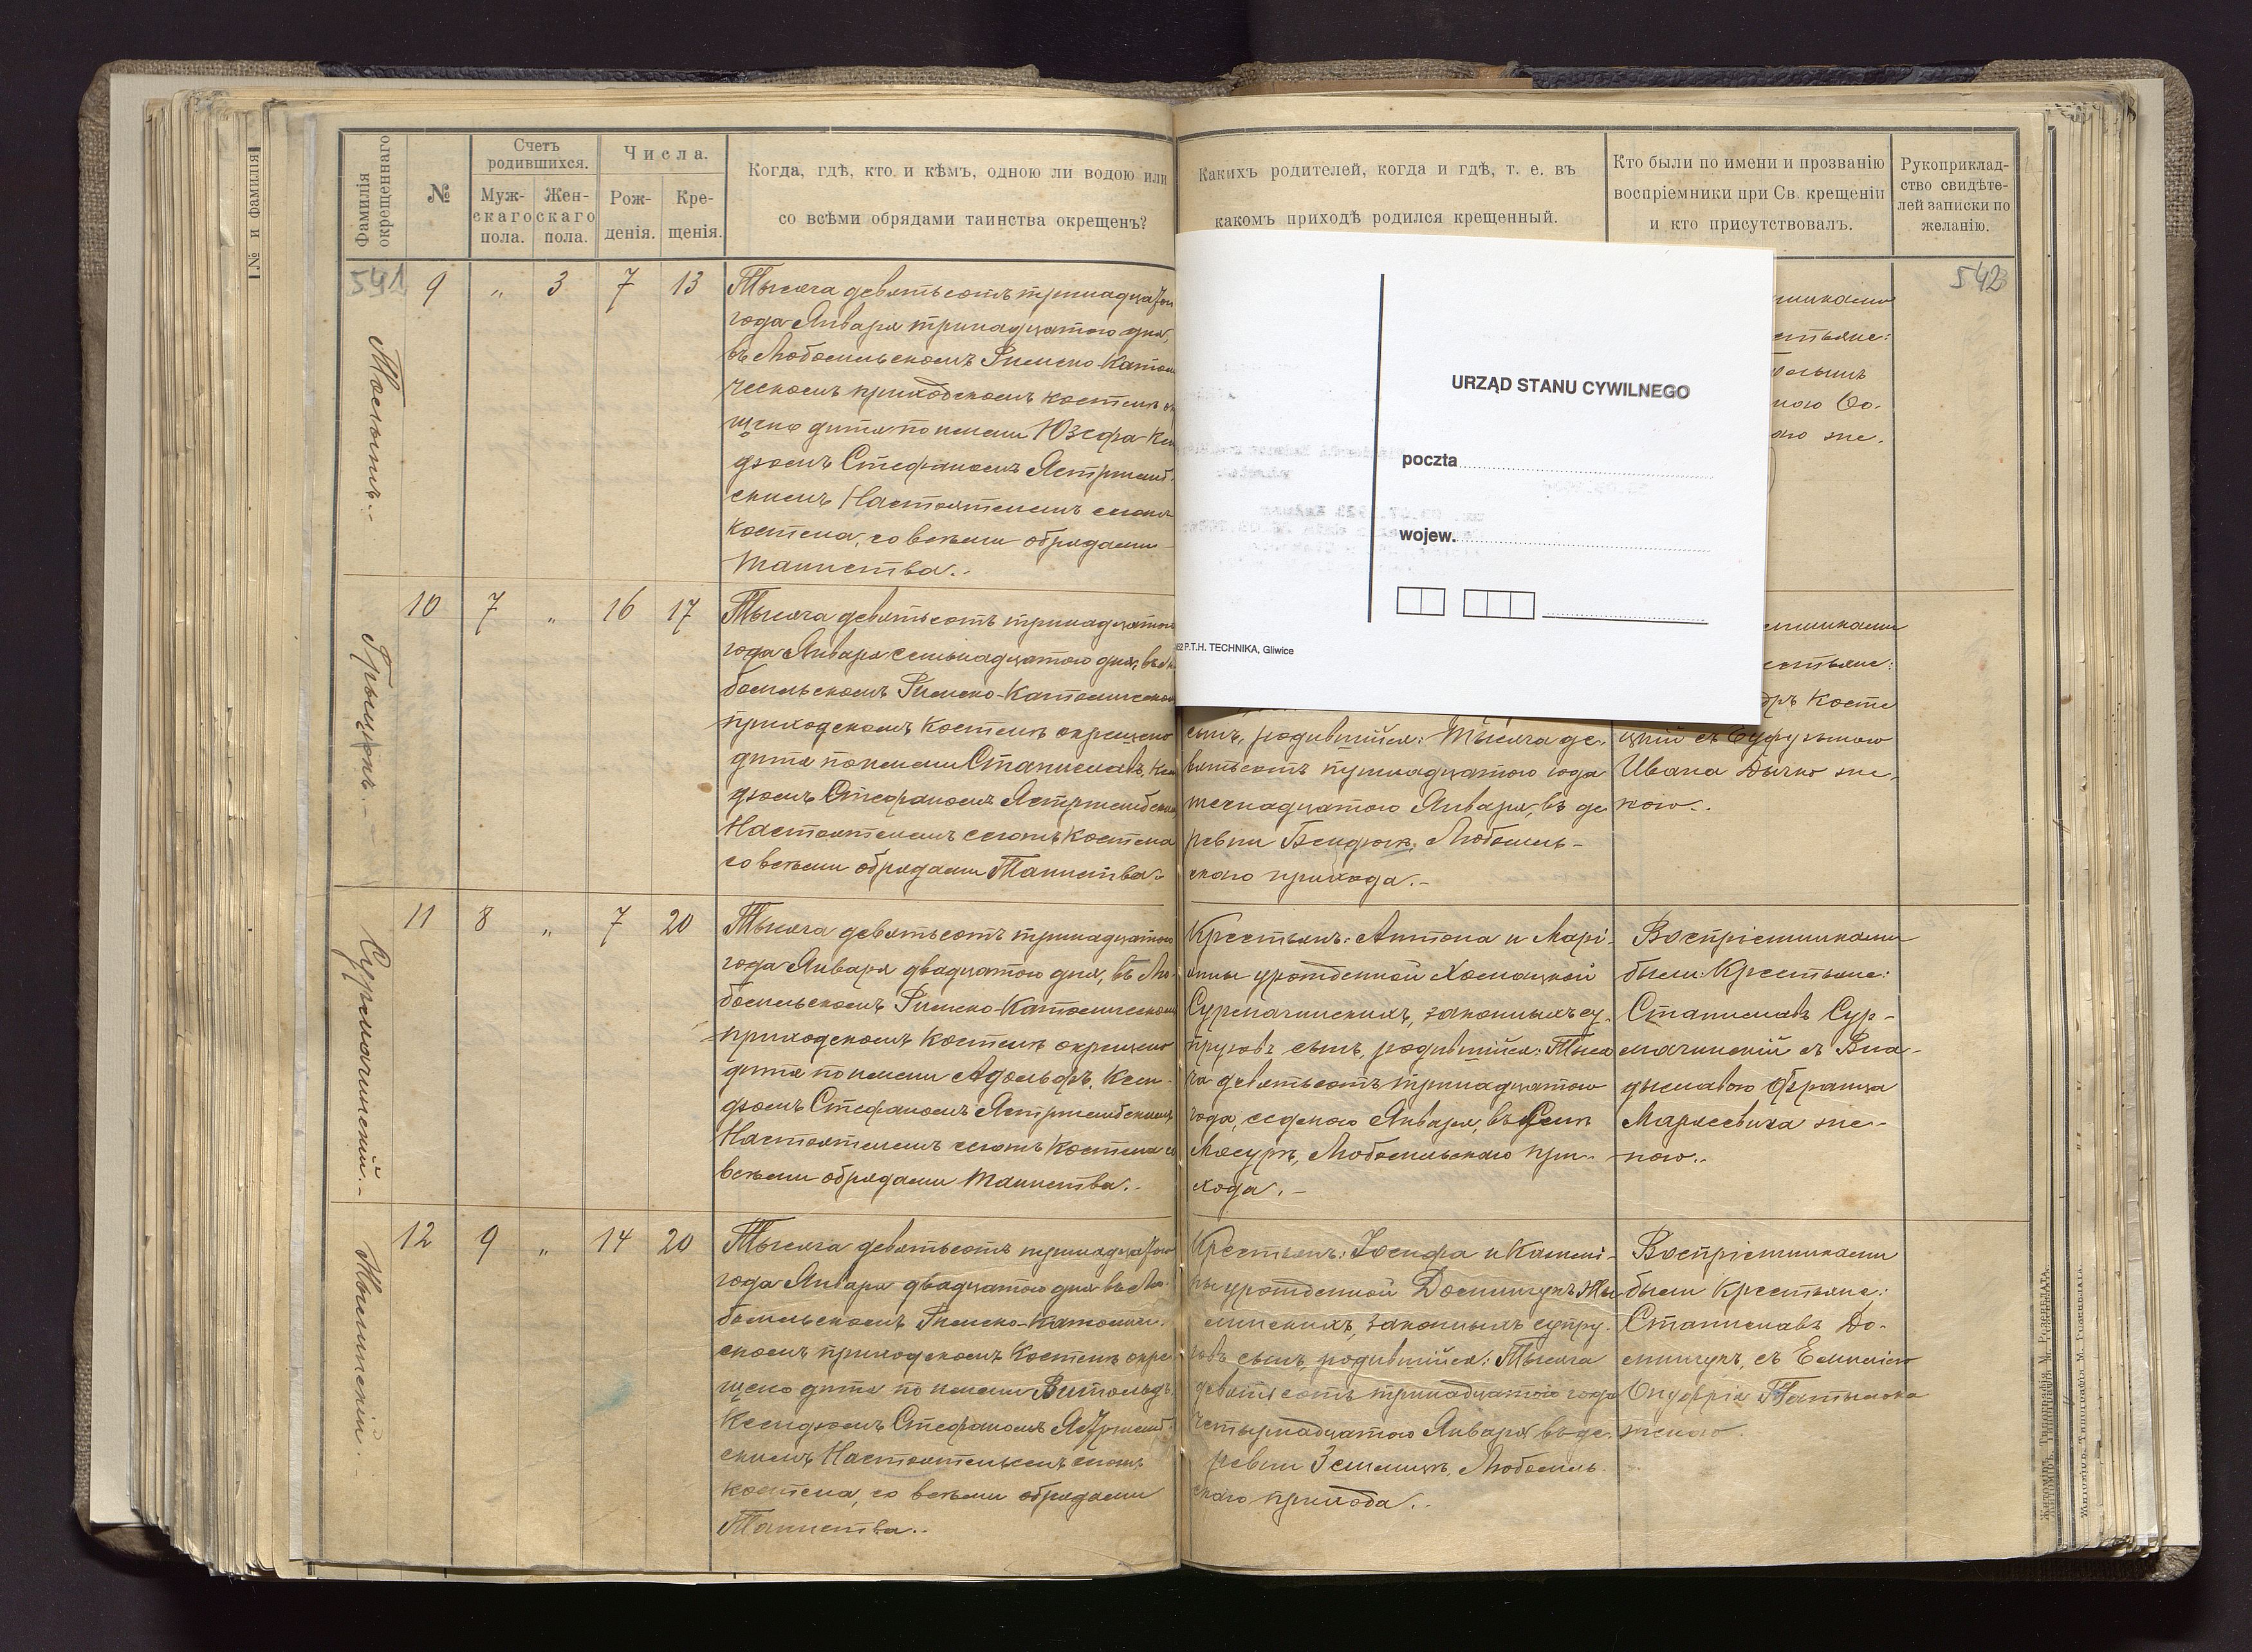 № и фамилія
Фамилія окрещеннаго
№
Счетъ родившихся.
Муж-скаго пола.
Жен-скаго пола.
Числа.
Рож-денія.
Кре-щенія.
Когда, гдѣ, кто и кѣмъ, одною ли водою или
со всѣми обрядами таинства окрещенъ?
Какихъ родителей, когда и гдѣ, т. е. въ
какомъ приходѣ родился крещенный.
Кто были по имени и прозванію
воспріемники при Св. крещеніи
и кто присутствовалъ.
Рукоприклад-
ство свидѣте-
лей записки по
желанію.
541
9 „ 3 7 13
Тысяча девятьсотъ тринадцатого
года Января тринадцатого дня,
въ Любомльскомъ Римско-Католи
ческомъ приходскомъ костелѣ ок
щено дитя по имени Юзефа Ксен
дзомъ Стефаномъ Ястржемб-
скимъ Настоятелемъ сегожъ
костела, со всѣми обрядами
Таинства.
542
никами
естьяне:
ною
URZĄD STANU CYWILNEGO
poczta
wojew.
P.T.H. TECHNIKA, Gliwice
10 7 „ 16 17
Тысяча девятьсотъ тринадцатого
года Января семьнадцатого дня, въ Лю
бомльскомъ Римско-Католическомъ
приходскомъ костелѣ окрещено
дитя по имени Станиславъ, Ксен
дзомъ Стефаномъ Ястржембскимъ
Настоятелемъ сегожъ костела
со всѣми обрядами Таинства.
сынъ, родившійся: Тысяча де-
вятьсотъ тринадцатого года
шестнадцатого Января, въ де
ревни Бендюгѣ, Любомль-
скаго прихода.
емниками
естьяне:
дръ Косте
цкій съ
Ивана Дычко же-
ною.
Сурмачинскій.
11 8 „ 7 20
Тысяча девятьсотъ тринадцатого
года Января двадцатого дня, въ Лю-
бомльскомъ Римско-Католическомъ
приходскомъ костелѣ окрещено
дитя по имени Адольфъ, Ксен-
дзомъ Стефаномъ Ястржембскимъ
Настоятелемъ сегожъ костела со
всѣми обрядами Таинства.
Крестьянъ: Антона и Марі-
анны урожденной Хомицкой
Сурмачинскихъ, законныхъ су-
пруговъ сынъ, родившійся: Тыся
ча девятьсотъ тринадцатого
года, седьмого Января, въ Селѣ
Мосурѣ, Любомльскаго при-
хода.
Воспріемниками
были: Крестьяне:
Станиславъ Сур-
мачинскій съ Вла-
дыславою Франца
Марцевича же-
ною.
12 9 „ 14 20
Тысяча девятьсотъ тринадцатого
года Января двадцатого дня въ Лю-
бомльскомъ Римско-Католиче-
скомъ приходскомъ костелѣ окре-
щено дитя по имени Витольдъ,
Ксендзомъ Стефаномъ Ястржемб-
скимъ Настоятелемъ сегожъ
костела, со всѣми обрядами
Таинства.
Крестьянъ: Іосифа и Казимі-
ры урожденной Доминчукъ
законныхъ супру-
говъ сынъ, родившійся: Тысяча
девятьсотъ тринадцатого года
четырнадцатого Января въ де-
ревни Любомль-
скаго прихода.
Воспріемниками
были Крестьяне:
Станиславъ До-
минчукъ, съ Емилією
Онуфрія
женою.